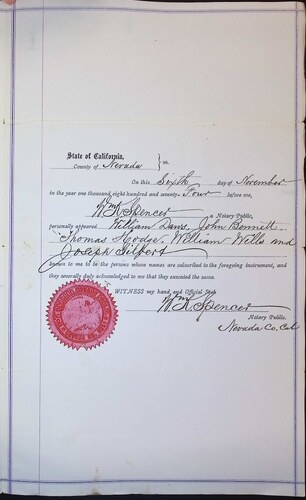 State of California,
County of Nevada } ss.
On this Sixth day of November
in the year one thousand eight hundred and seventy-Four before me,
Wm K Spencer a Notary Public,
personally appeared William Davis, John Bennett
Thomas Hodge, William Wills and
Joseph Gilbert
known to me to be the persons whose names are subscribed to the foregoing instrument, and
they severally duly acknowledged to me that they executed the same.
WITNESS my hand, and Official Seal
Wm K Spencer
Notary Public.
Nevada Co, Cal